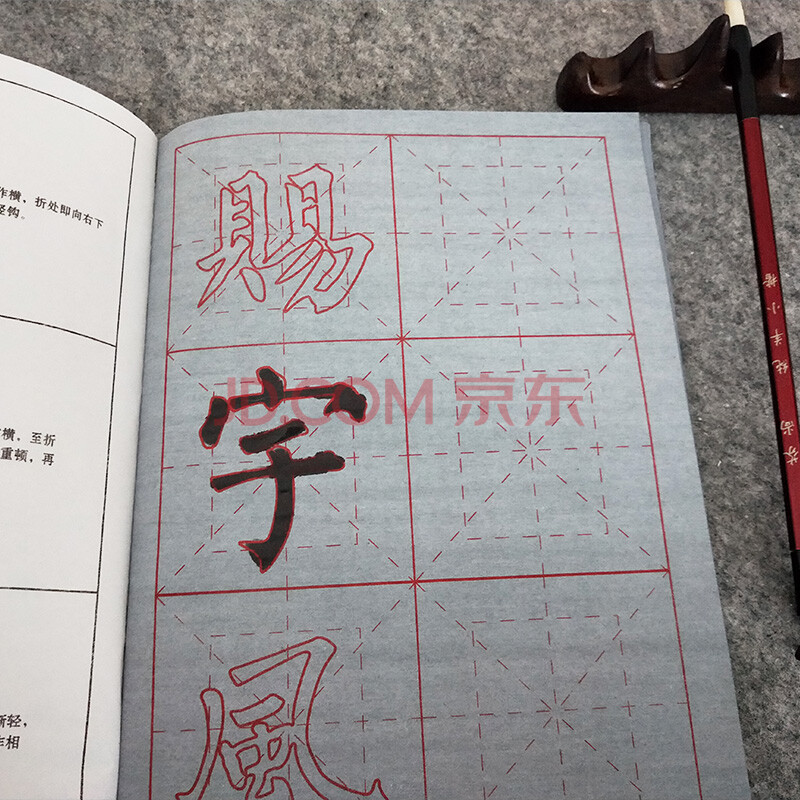 作横，折处即向右下
竖钩。
横。至折
重顿，再
渐轻，
作相
賜
字
風
JD.COM 京东
小楷
纯羊
尚